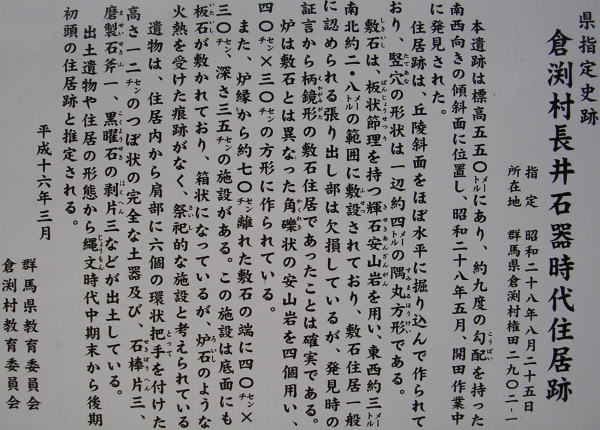 県指定史跡
倉渕村長井石器時代住居跡
指定 昭和二十八年八月二十五日
所在地 群馬県倉渕村権田二九〇二-一
本遺跡は標高五五〇メートルにあり、約九度の勾配を持った
南西向きの傾斜面に位置し、昭和二十八年五月、開田作業中
に発見された。
住居跡は、丘陵斜面をほぼ水平に掘り込んで作られて
おり、竪穴の形状は一辺約四メートルの隅丸方形である。
敷石は、板状節理を持つ輝石安山岩を用い、東西約三メートル
南北約二・八メートルの範囲に敷設されており、敷石住居一般
に認められる張り出し部は欠損しているが、発見時の
証言から柄鏡形の敷石住居であったことは確実である。
炉は敷石とは異なった角礫状の安山岩を四個用い、
四〇センチ×三〇センチの方形に作られている。
また、炉縁から約七〇センチ離れた敷石の端に四〇センチ×
三〇センチ、深さ三五センチの施設がある。この施設は底面にも
板石が敷かれており、箱状になっているが、炉石のような
火熱を受けた痕跡がなく、祭祀的な施設と考えられている
遺物は、住居内から肩部に六個の環状把手を付けた
高さ一二センチのつぼ状の完全な土器及び、石棒片三、
磨製石斧一、黒曜石の剥片三などが出土している。
出土遺物や住居の形態から縄文時代中期末から後期
初頭の住居跡と推定される。
平成十六年三月
群馬県教育委員会
倉渕村教育委員会